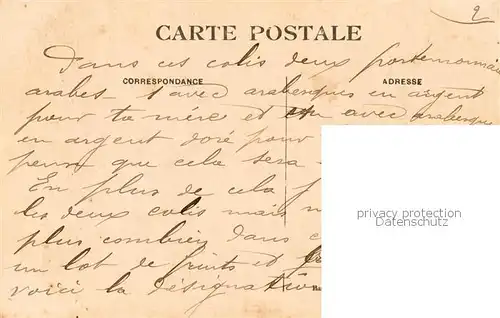 2
CARTE POSTALE
Dans ces colis deux portemonnaie
CORRESPONDANCE
ADRESSE
arabes 1 avec arabesques en argent
pour ta mère et avec arabesques
en argent doré pour
pense que cela sera
privacy protection
Datenschutz
En plus de cela
les deux colis mais
plus combien dans
un lot de fruits et
voici la désignation